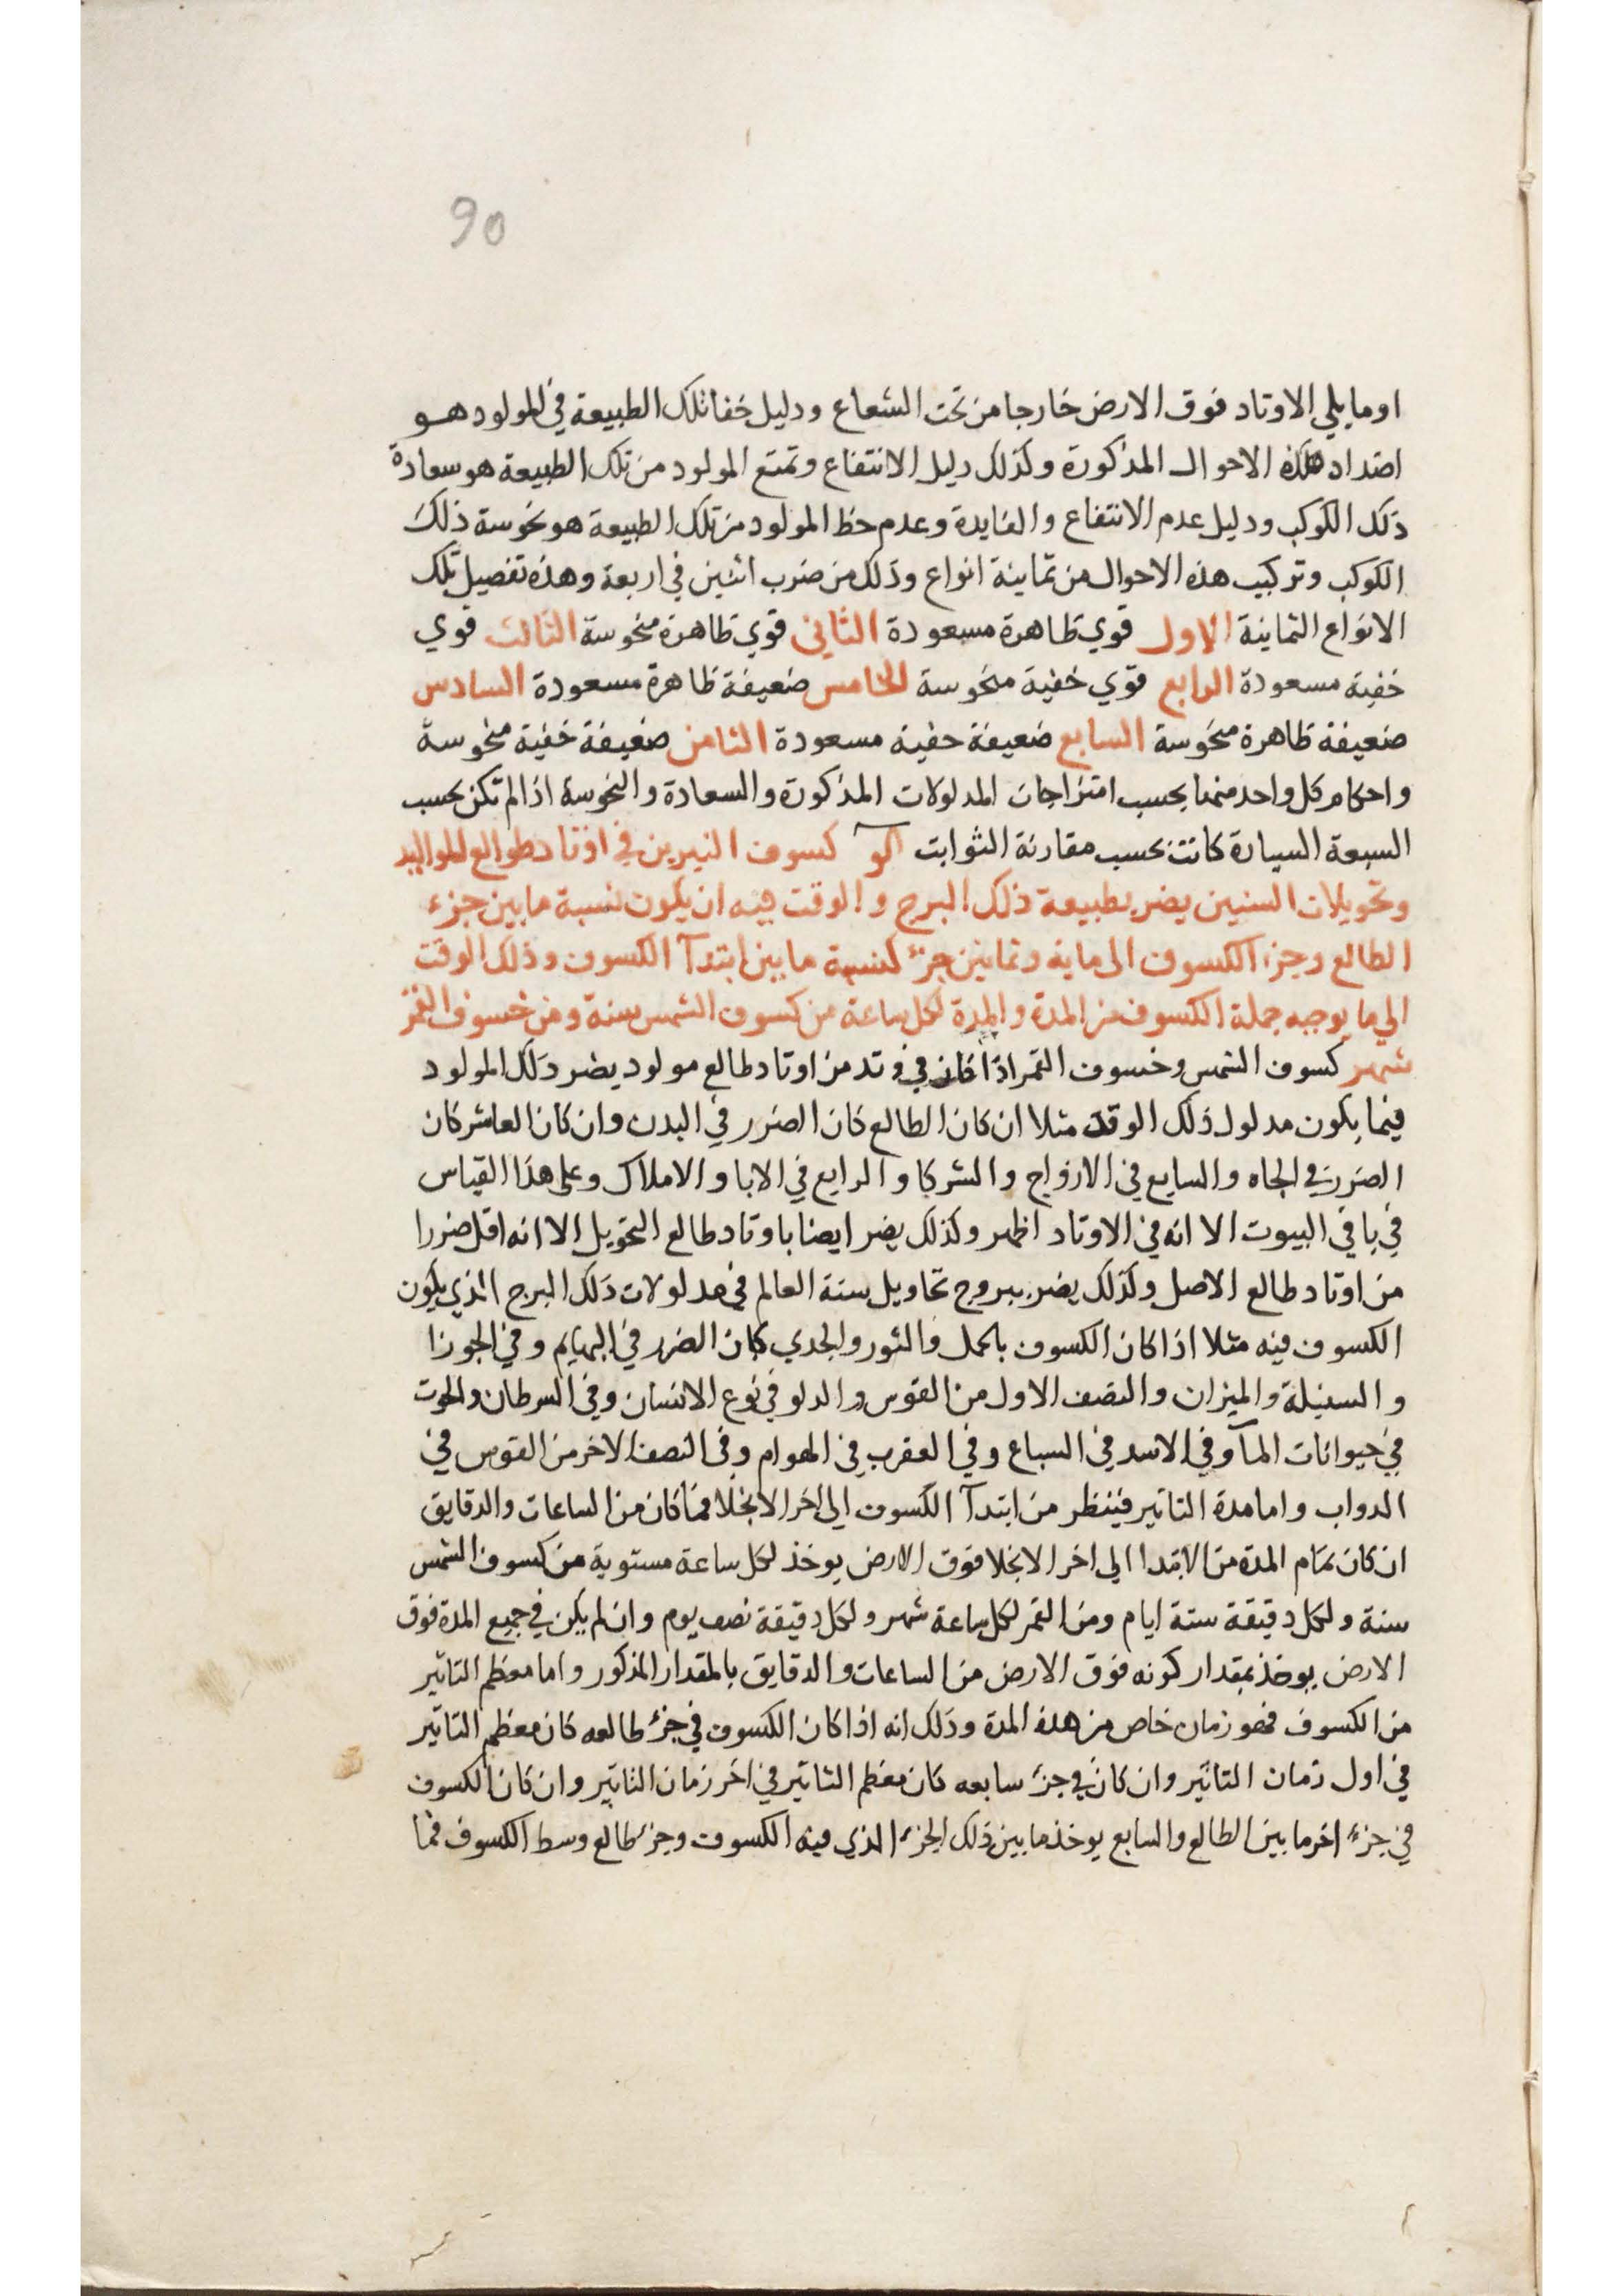 90
او ما يلي الاوتاد فوق الارض خارجا من تحت الشعاع ودليل خفا تلك الطبيعة في المولود هو
اضداد هذه الاحوال المذكورة وكذلك دليل الانتفاع وتمتع المولود من تلك الطبيعة هو سعادة
ذلك الكوكب ودليل عدم الانتفاع والفايدة وعدم حظ المولود من تلك الطبيعة هو نحوسة ذلك
الكوكب وتركيب هذه الاحوال من ثماينة انواع وذلك من ضرب اثنين في اربعة وهذه تفصيل تلك
الانواع الثماينة الاول قوي ظاهرة مسعودة الثاني قوي ظاهرة منحوسة الثالث قوي
خفية مسعودة الرابع قوي خفية منحوسة الخامس ضعيفة ظاهرة مسعودة السادس
ضعيفة ظاهرة منحوسة السابع ضعيفة خفية مسعودة الثامن ضعيفة خفية منحوسة
واحكام كل واحد منها بحسب امتزاجات المدلولات المذكورة والسعادة والنحوسة اذا لم تكن بحسب
السبعة السيارة كانت بحسب مقارنة الثوابت كسوف النيرين في اوتاد طوالع المواليد
وتحويلات السنين يضر بطبيعة ذلك البرج والوقت فيه ان يكون نسبة ما بين جزء
الطالع وجزء الكسوف الى ماية وثمانين جزء كنسبة ما بين ابتدآ الكسوف وذلك الوقت
الي ما يوجبه جملة الكسوف من المدة والمدة لكل ساعة من كسوف الشمس سنة ومن خسوف القمر
شهر كسوف الشمس وخسوف القمر اذا كان في وتد من اوتاد طالع مولود يضر ذلك المولود
فيما يكون مدلول ذلك الوتد مثلا ان كان الطالع كان الضرر في البدن وان كان العاشر كان
الضرر في الجاه والسابع في الازواج والشركا والرابع في الابا والاملاك وعلى هذا القياس
في باقي البيوت الا انه في الاوتاد اظهر وكذلك يضر ايضا باوتاد طالع التحويل الا انه اقل ضررا
من اوتاد طالع الاصل وكذلك يضر ببروج تحاويل سنة العالم في مدلولات ذلك البرج الذي يكون
الكسوف فيه مثلا اذا كان الكسوف بالحمل والثور والجدي كان الضرر في البهايم وفي الجوزا
والسنبلة والميزان والنصف الاول من القوس والدلو في نوع الانسان وفي السرطان والحوت
في حيوانات المآ وفي الاسد في السباع وفي العقرب في الهوام وفي النصف الاخر من القوس في
الدواب واما مدة التاثير فينظر من ابتدآ الكسوف الي اخر الانجلا فما كان من الساعات والدقايق
ان كان تمام المدة من الابتدا الي اخر الانجلا فوق الارض يوخذ لكل ساعة مستوية من كسوف الشمس
سنة ولكل دقيقة ستة ايام ومن القمر لكل ساعة شهر ولكل دقيقة نصف يوم وان لم يكن في جميع المدة فوق
الارض يوخذ بمقدار كونه فوق الارض من الساعات والدقايق بالمقدار المذكور واما معظم التاثير
من الكسوف فهو زمان خاص من هذه المدة وذلك انه اذا كان الكسوف في جزء طالعه كان معظم التاثير
في اول زمان التاثير وان كان في جزء سابعه كان معظم التاثير في اخر زمان التاثير وان كان الكسوف
في جزء اخر ما بين الطالع والسابع يوخذ ما بين ذلك الجزء الذي فيه الكسوف وجزء طالع وسط الكسوف فما